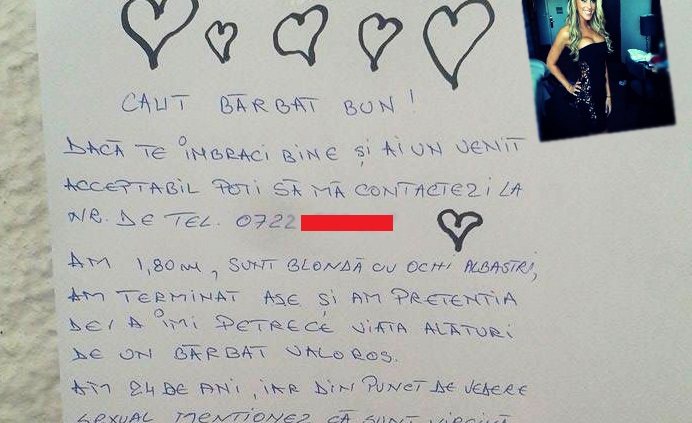 CAUT BĂRBAT BUN!
DACĂ TE ÎMBRACI BINE ȘI AI UN VENIT
ACCEPTABIL POȚI SĂ MĂ CONTACTEZI LA
NR. DE TEL. 0722
AM 1,80m, SUNT BLONDĂ CU OCHI ALBAȘTRI,
AM TERMINAT ASE ȘI AM PRETENTIA
DE A ÎMI PETRECE VIATA ALĂTURI
DE UN BĂRBAT VALOROS.
AM 24 DE ANI, IAR DIN PUNCT DE VEDERE
SEXUAL MENTIONEZ CĂ SUNT VIRGINĂ